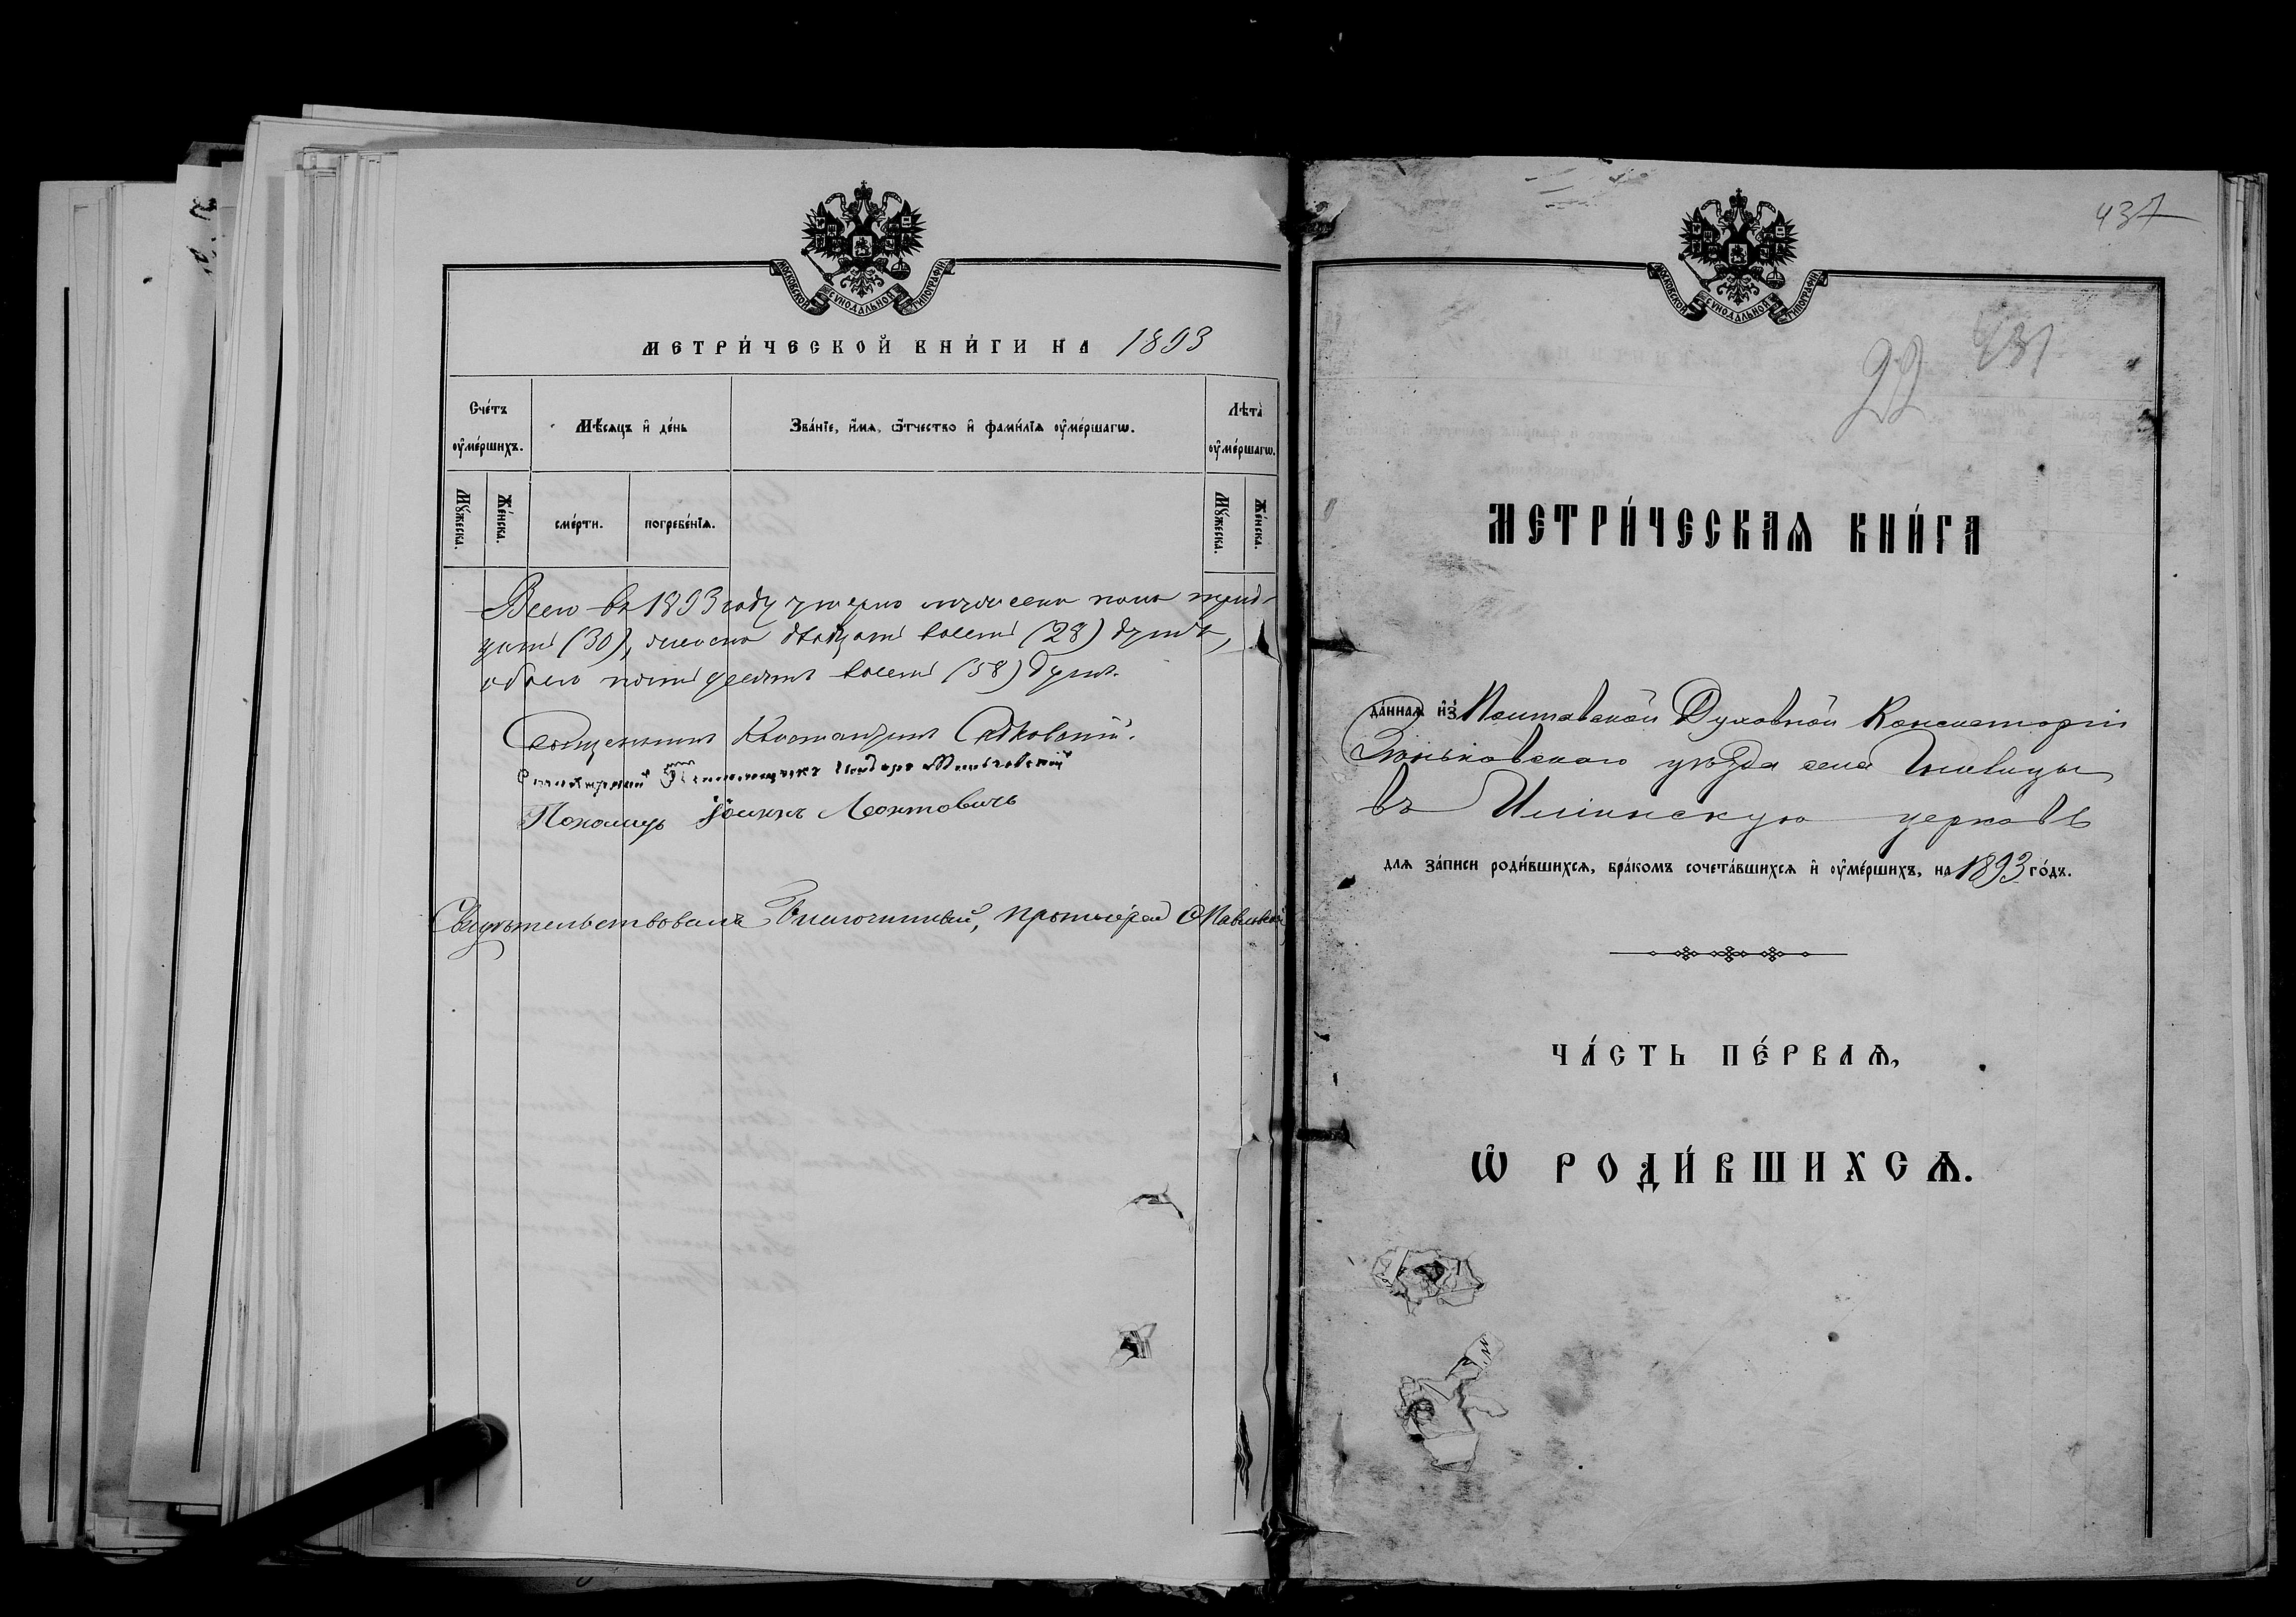 МОСКОВСКОЙ СѴНОДАЛЬНОЙ ТИПОГРАФІИ
МЕТРИ́ЧЕСКОЙ КНИ́ГИ НА 1893
Сче́тъ ᲂу҆ме́ршихъ.
Мѣ́сяцъ и҆ де́нь
Зва́нїе, и҆́мѧ, ѻ҆́тчество и҆ фами́лїѧ ᲂу҆ме́ршагѡ.
Лѣта̀ ᲂу҆ме́ршагѡ.
Мꙋ́жеска.
Же́нска.
сме́рти.
погребе́нїѧ.
Мꙋ́жеска.
Же́нска.
Всего въ 1893 году умерло мужеска пола трид-
цать (30), женска двадцать восемь (28) душъ,
обоего пятьдесятъ восемь (58) душъ.
Священникъ Константинъ Садковскій.
Псаломщикъ
Пономарь Іоаннъ Леонтовичъ
Свидѣтельствовалъ Благочинный, протоіерей
437
МОСКОВСКОЙ СѴНОДАЛЬНОЙ ТИПОГРАФІИ
437
22
МЕТРИ́ЧЕСКАѦ КНИ́ГА
да́ннаѧ и҆з̾ Полтавской Духовной Консисторіи
Зѣньковскаго уѣзда села
въ Ильинскую церковь
длѧ за́писи роди́вшихсѧ, бра́комъ сочета́вшихсѧ и҆ ᲂу҆ме́ршихъ, на 1893 го́дъ.
ЧА́СТЬ ПЕ́РВАѦ,
Ѡ҆ РОДИ́ВШИХСѦ.